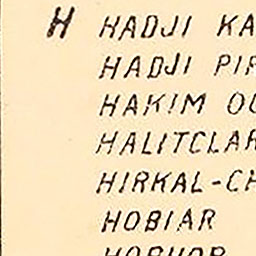 H HADJI KA
HADJI PIR
HAKIM OU
HALITCLAR
HIRKAL-CH
HOBIAR